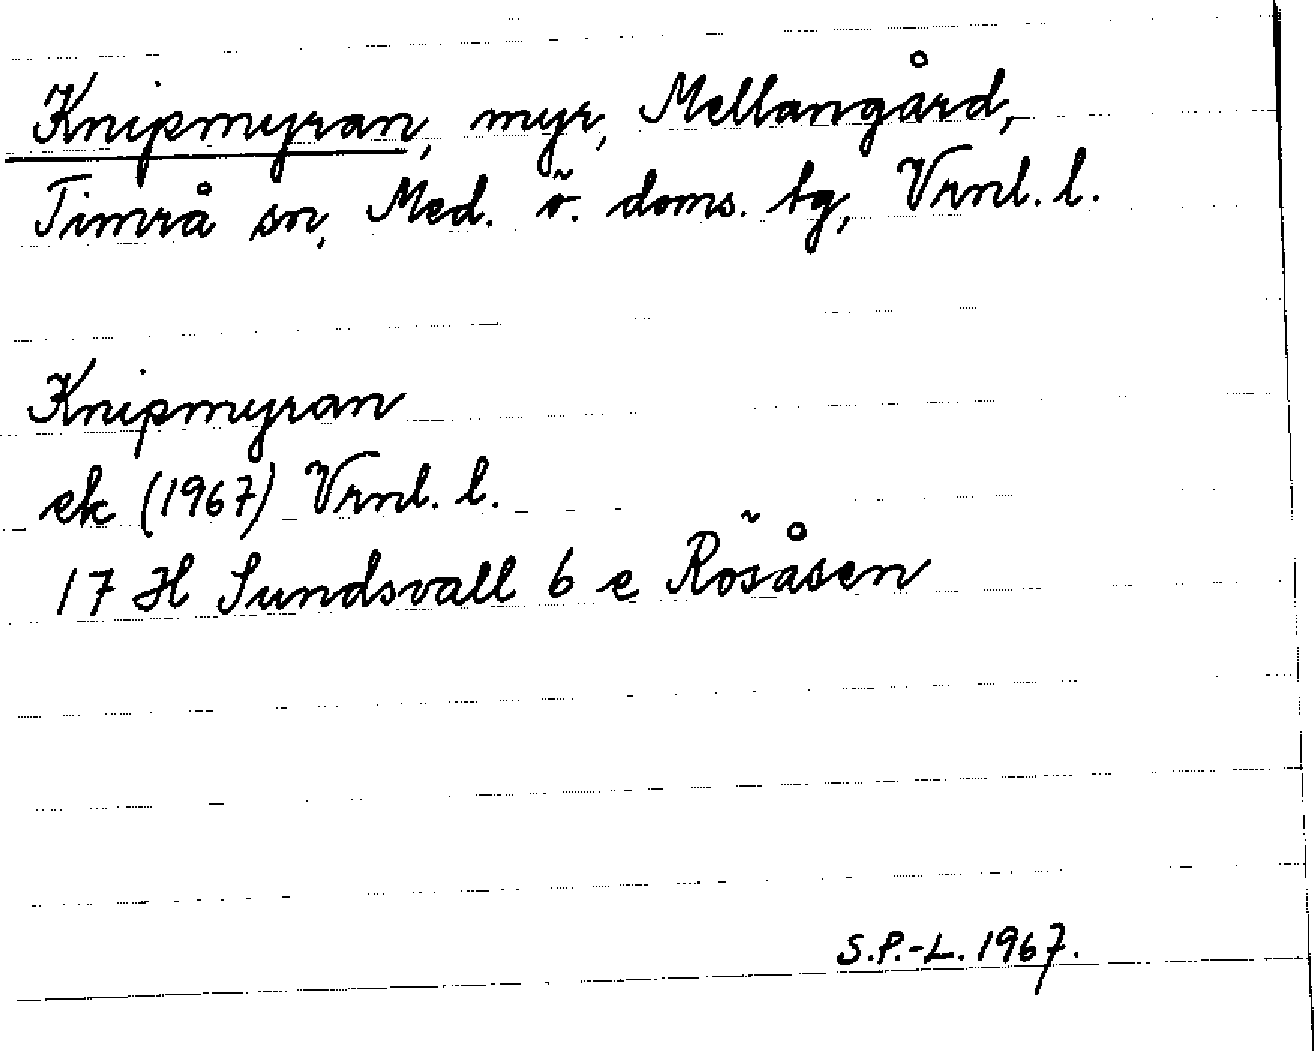 Knipmyran, myr, Mellangård,
Timrå sn, Med. ö. doms. tg, Vrnl. l.
Knipmyran
ek (1967) Vrnl. l.
17 H Sundsvall 6 e Rösåsen
S.P.-L. 1967.